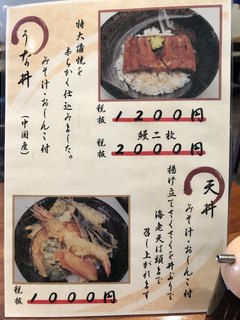 うな丼
みそ汁・おしんこ付
(中国産)
特大蒲焼を
柔らかく仕込みました。
税抜 1200円
鰻二枚
税抜 2000円
天丼
みそ汁・おしんこ付
揚げ立てさくさくを丼ぶりで
海老天は頭まで
召し上がれます
税抜 1000円